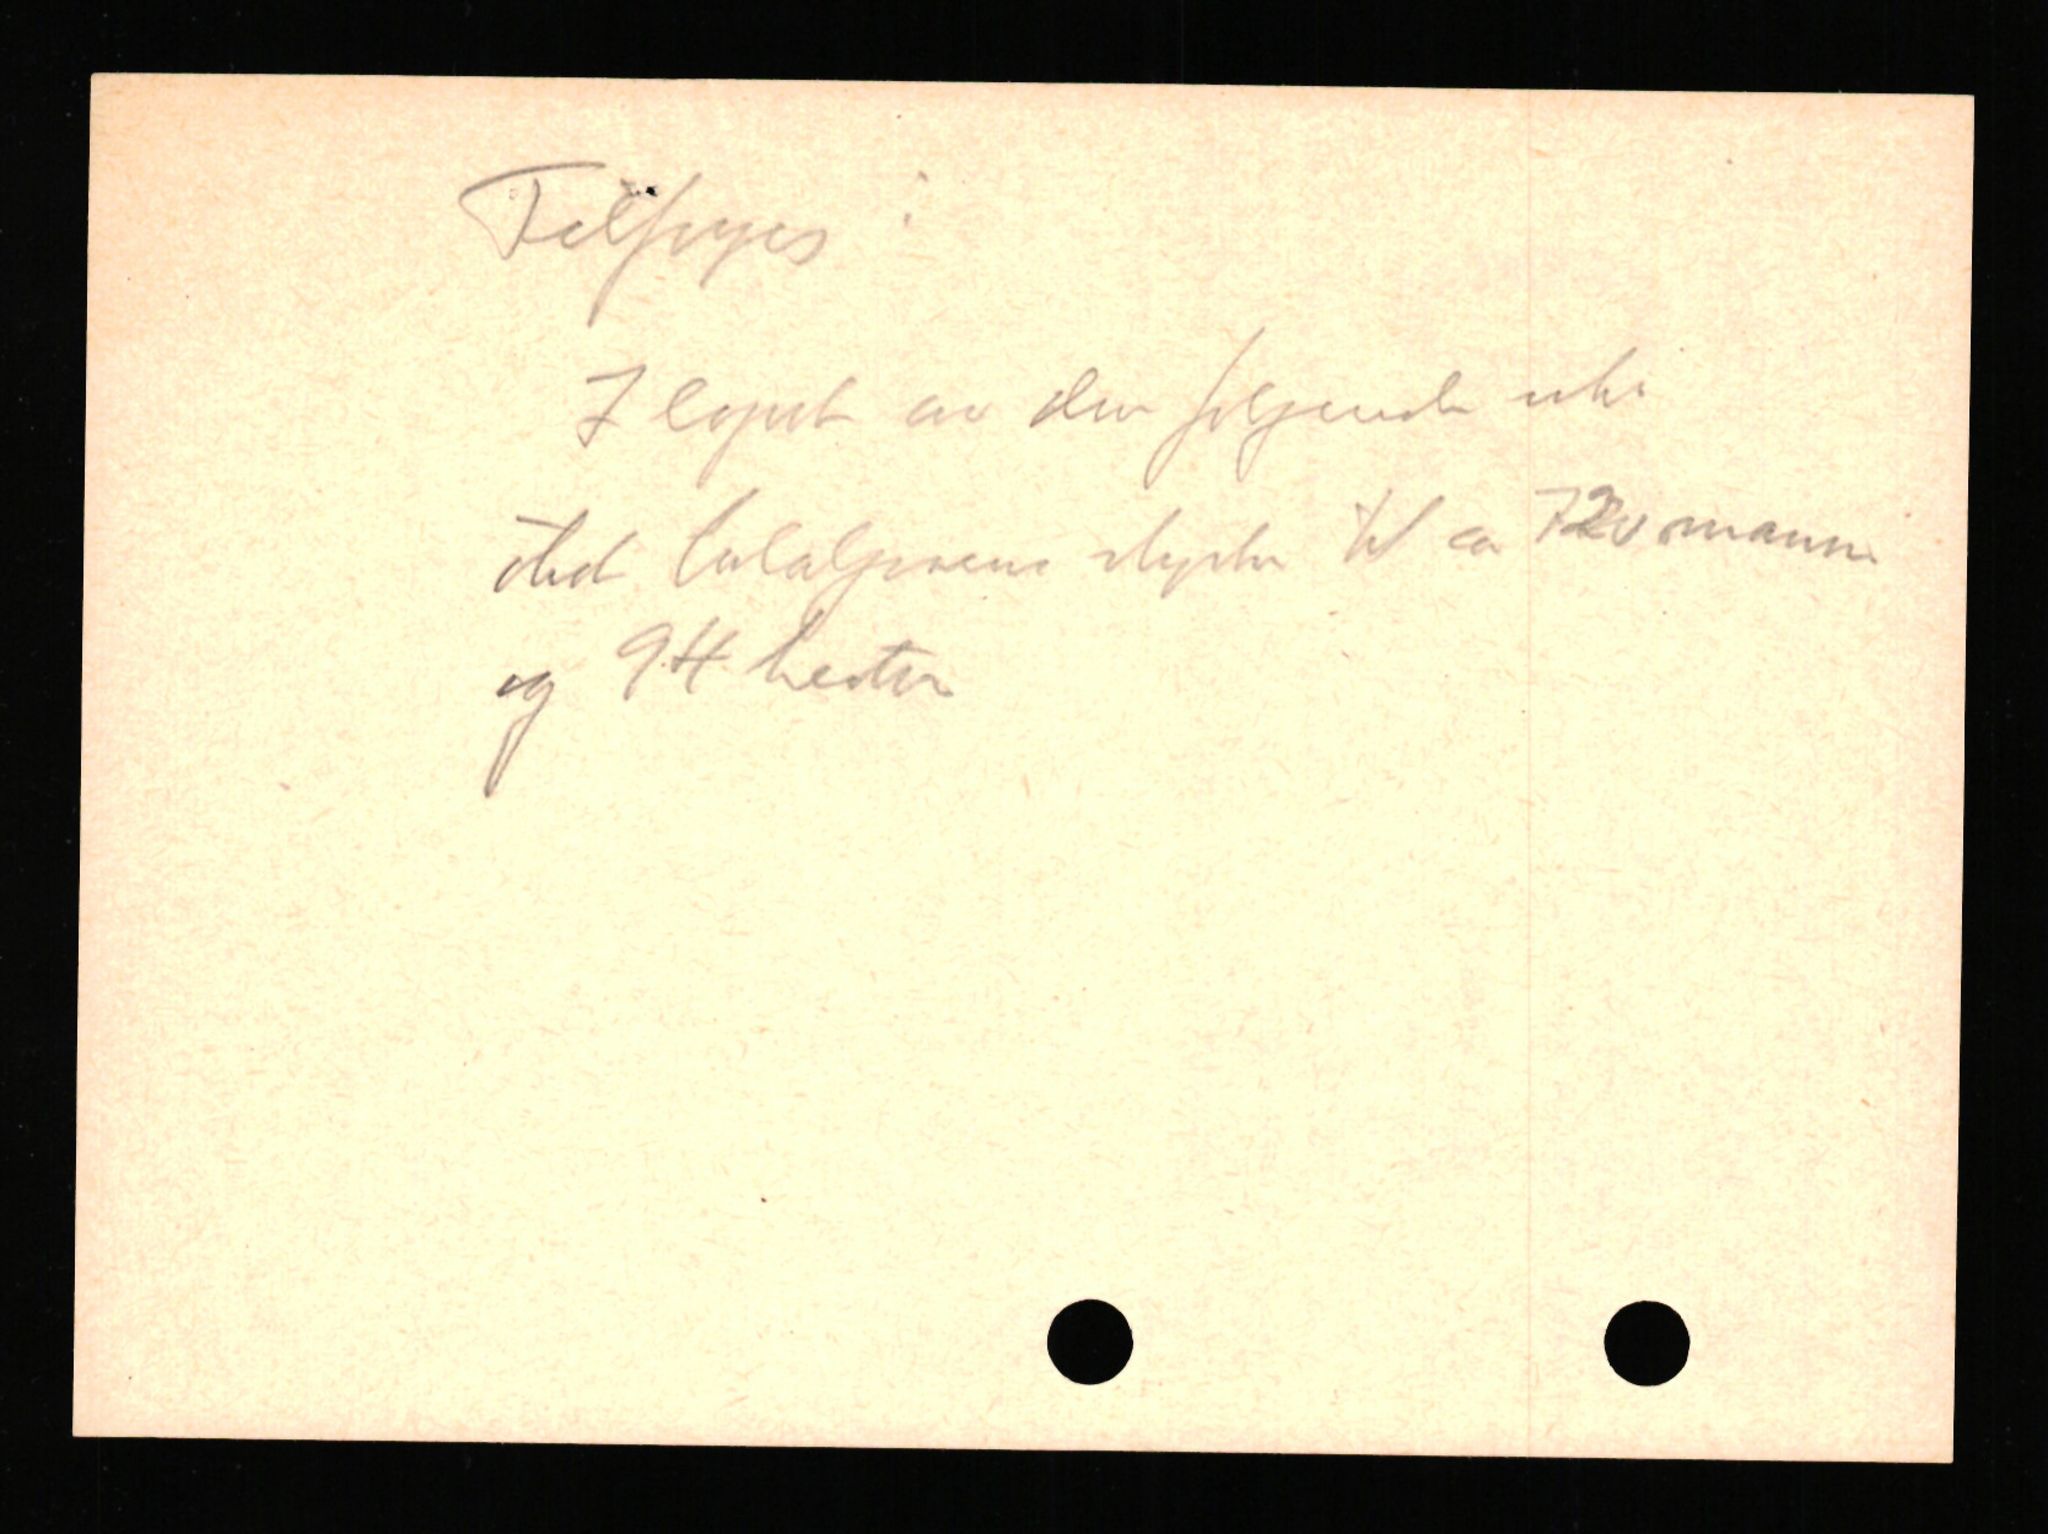 Tilføyes :
I løpet av den følgende uke
øket bataljonens styrke til ca 720 mann
og 94 hester